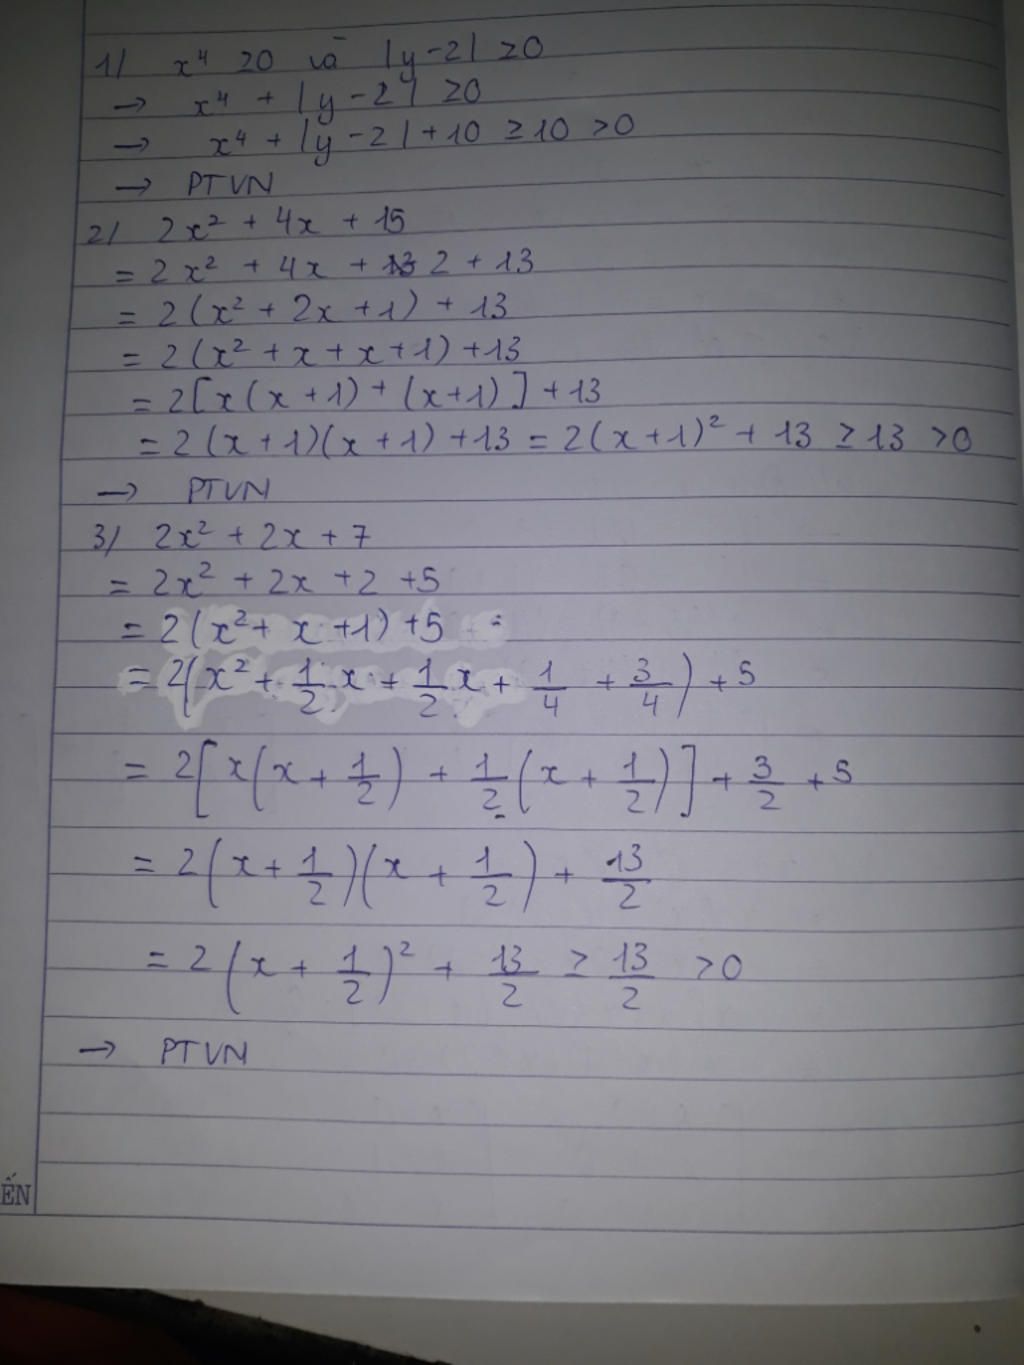 1/ x⁴ ≥0 và |y-2| ≥0
→ x⁴ + |y-2| ≥0
→ x⁴ + |y-2|+10 ≥10 >0
→ PTVN
2/ 2x² + 4x + 15
= 2x² + 4x + 2 + 13
= 2(x² + 2x +1) + 13
= 2(x² + x + x +1) +13
= 2[x(x+1) + (x+1)] +13
= 2(x+1)(x+1) +13 = 2(x+1)² + 13 ≥13 >0
→ PTVN
3/ 2x² + 2x + 7
= 2x² + 2x + 2 +5
= 2(x² + x +1) +5
= 2(x² + 1/2 x + 1/2 x + 1/4 + 3/4) + 5
= 2[x(x + 1/2) + 1/2(x + 1/2)] + 3/2 + 5
= 2(x + 1/2)(x + 1/2) + 13/2
= 2(x + 1/2)² + 13/2 ≥ 13/2 >0
→ PTVN
ẾN